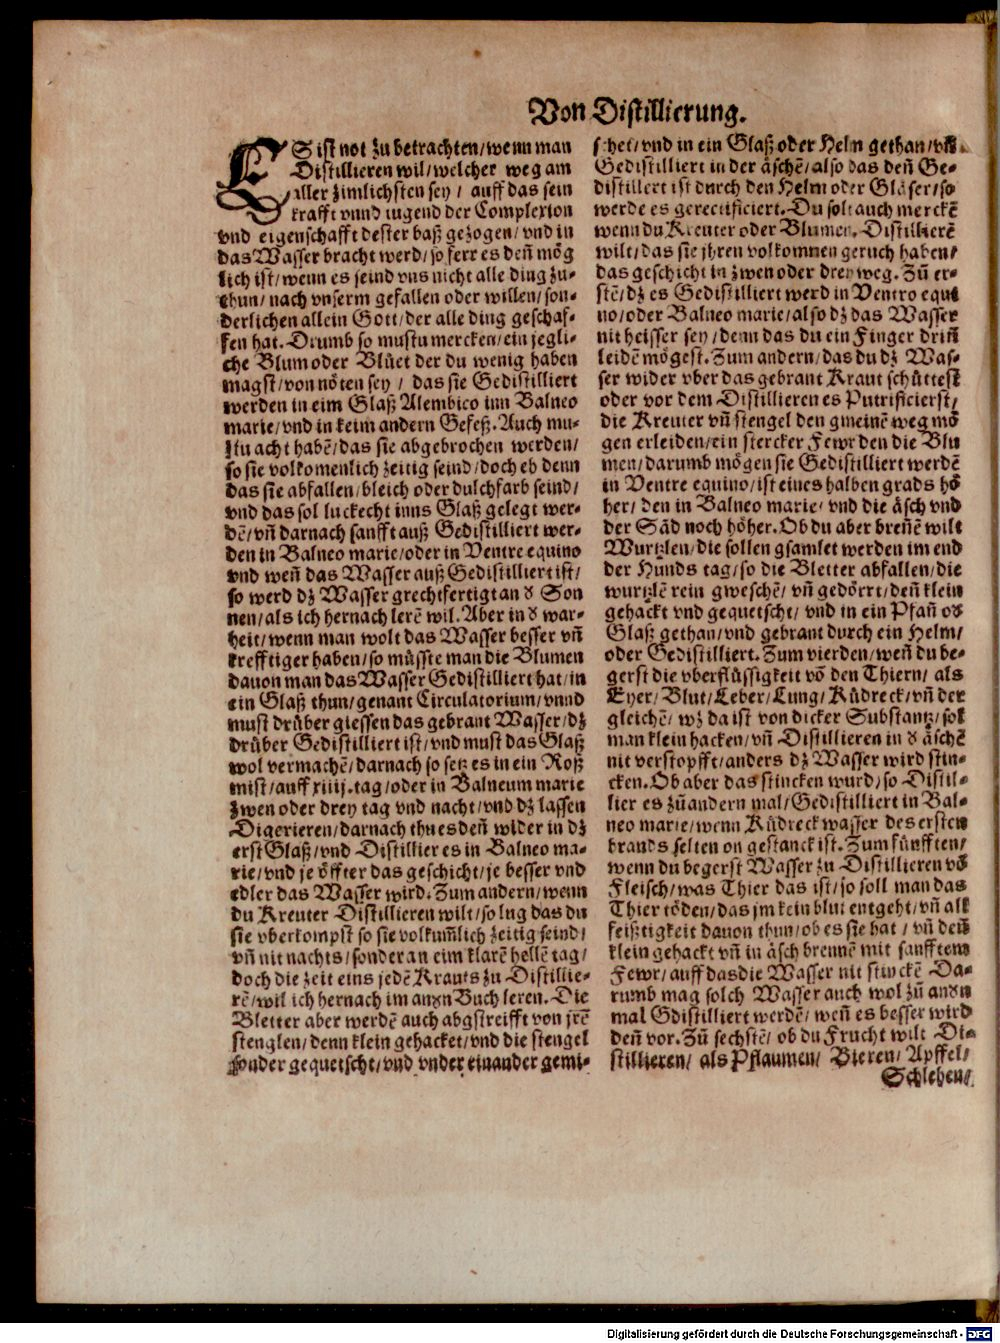 Von Distillierung.
ES ist not zu betrachten/wenn man
Distillieren wil/welcher weg am
aller zimlichsten sey/ auff das sein
krafft vnnd tugend der Complexion
vnd eigenschafft dester baß gezogen/vnd in
das Wasser bracht werd/so ferr es deñ mög
lich ist/wenn es seind vns nicht alle ding zu-
thun/nach vnserm gefallen oder willen/son-
derlichen allein Gott/der alle ding geschaf-
fen hat. Drumb so mustu mercken/ein jegli-
che Blum oder Blüet der du wenig haben
magst/von nöten sey/ das sie Gedistilliert
werden in eim Glaß Alembico inn Balneo
marie/vnd in keim andern Gefeß. Auch mu-
stu acht habē/das sie abgebrochen werden/
so sie volkomenlich zeitig seind/doch eb denn
das sie abfallen/bleich oder dulchfarb seind/
vnd das sol luckecht inns Glaß gelegt wer-
dē/vñ darnach sanfft auß Gedistilliert wer-
den in Balneo marie/oder in Ventre equino
vnd weñ das Wasser auß Gedistilliert ist/
so werd dz Wasser grechtfertigt an d Son
nen/als ich hernach lerē wil. Aber in d war-
heit/wenn man wolt das Wasser besser vñ
krefftiger haben/so müsste man die Blumen
dauon man das Wasser Gedistilliert hat/in
ein Glaß thun/genant Circulatorium/vnnd
must drüber giessen das gebrant Wasser/dz
drüber Gedistilliert ist/vnd must das Glaß
wol vermachē/darnach so setz es in ein Roß
mist/auff xiiij.tag/oder in Balneum marie
zwen oder drey tag vnd nacht/vnd dz lassen
Digerieren/darnach thu es deñ wider in dz
erst Glaß/vnd Distillier es in Balneo ma-
rie/vnd je öffter das geschicht/je besser vnd
edler das Wasser wird. Zum andern/wenn
du Kreuter Distillieren wilt/so lug das du
sie vberkompst so sie volkum̃lich zeitig seind/
vñ nit nachts/sonder an eim klarē hellē tag/
doch die zeit eins jedē Krauts zu Distillie-
rē/wil ich hernach im andn Buch leren. Die
Bletter aber werdē auch abgstreifft von jrē
stenglen/denn klein gehacket/vnd die stengel
sonder gequetscht/vnd vnder einander gemi-
schet/vnd in ein Glaß oder Helm gethan/vñ
Gedistilliert in der äschē/also das deñ Ge-
distillert ist durch den Helm oder Gläser/so
werde es gerectificiert. Du solt auch merckē
wenn du Kreuter oder Blumen, Distillierē
wilt/das sie jhren volkomnen geruch haben/
das geschicht in zwen oder drey weg. Zũ er-
stē/dz es Gedistilliert werd in Ventro equi
no/oder Balneo marie/also dz das Wasser
nit heisser sey/denn das du ein Finger driñ
leidē mögest. Zum andern/das du dz Was-
ser wider vber das gebrant Kraut schüttest
oder vor dem Distillieren es Putrificierst/
die Kreuter vñ stengel den gmeinē weg mö
gen erleiden/ein stercker Fewr den die Blu
men/darumb mögen sie Gedistilliert werdē
in Ventre equino/ist eines halben grads hö
her/den in Balneo marie/ vnd die äsch vnd
der Sãd noch höher. Ob du aber breñē wilt
Wurtzlen/die sollen gsamlet werden im end
der Hunds tag/so die Bletter abfallen/die
wurtzlē rein gweschē/ vñ gedörrt/deñ klein
gehackt vnd gequetscht/ vnd in ein Pfañ od
Glaß gethan/vnd gebrant durch ein Helm/
oder Gedistilliert. Zum vierden/weñ du be-
gerst die vberflüssigkeit võ den Thiern/ als
Eyer/Blut/Leber/Lung/Küdreck/vñ der
gleichē/wz da ist von dicker Substantz/sol
man klein hacken/vñ Distillieren in d äschē
nit verstopfft/anders dz Wasser wird stin-
cken. Ob aber das stincken wurd/so Distil-
lier es zũ andern mal/Gedistilliert in Bal-
neo marie/wenn Küdreck wasser des ersten
brands selten on gestanck ist. Zum fünfften/
wenn du begerst Wasser zu Distillieren võ
Fleisch/was Thier das ist/so soll man das
Thier töden/das jm kein blut entgeht/vñ all
feißtigkeit dauon thun/ob es sie hat/ vñ deñ
klein gehackt vñ in äsch brennē mit sanfftem
Fewr/auff das die Wasser nit stinckē Da-
rumb mag solch Wasser auch wol zũ andn
mal Gdistilliert werdē/weñ es besser wird
deñ vor. Zũ sechstē/ ob du Frucht wilt Di-
stillieren/ als Pflaumen/ Bieren/ Apffel/
Schlehen/
Digitalisierung gefördert durch die Deutsche Forschungsgemeinschaft - DFG